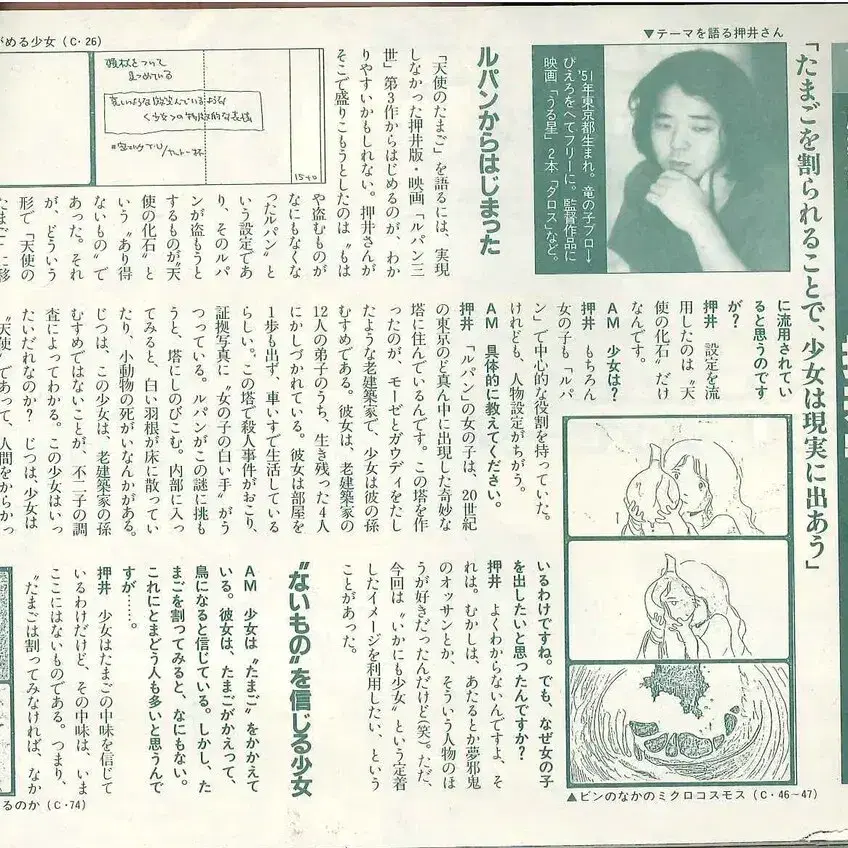 がめる少女（C・26）
頬杖をついて
15+0
▼テーマを語る押井さん
'51年東京都生まれ。竜の子プロ→
ぴえろをへてフリーに。監督作品に
映画「うる星」2本「ダロス」など。
「たまごを割られることで、少女は現実に出あう」
ルパンからはじまった
「天使のたまご」を語るには、実現
しなかった押井版・映画「ルパン三
世」第3作からはじめるのが、わか
りやすいかもしれない。押井さんが
そこで盛りこもうとしたのは〝もは
や盗むものが
なにもなくな
ったルパン〟と
いう設定であ
り、そのルパ
ンが盗もうと
するものが〝天
使の化石〟と
いう〝あり得
ないもの〟で
あった。それ
が、どういう
形で「天使の
たまご」に移
に流用されてい
ると思うのです
が？
押井　設定を流
用したのは〝天
使の化石〟だけ
なんです。
AM　少女は？
押井　もちろん
女の子も「ルパ
ン」で中心的な役割を持っていた。
けれども、人物設定がちがう。
AM　具体的に教えてください。
押井　「ルパン」の女の子は、20世紀
の東京のど真ん中に出現した奇妙な
塔に住んでいるんです。この塔を作
ったのが、モーゼとガウディをたし
たような老建築家で、少女は彼の孫
むすめである。彼女は、老建築家の
12人の弟子のうち、生き残った4人
にかしづかれている。彼女は部屋を
1歩も出ず、車いすで生活している
らしい。この塔で殺人事件がおこり、
証拠写真に〝女の子の白い手〟がう
つっている。ルパンがこの謎に挑も
うと、塔にしのびこむ。内部に入っ
てみると、白い羽根が床に散ってい
たり、小動物の死がいなんかがある。
じつは、この少女は、老建築家の孫
むすめではないことが、不二子の調
査によってわかる。この少女はいっ
たいだれなのか？　じつは、少女は
〝天使〟であって、人間をからかっ
いるわけですね。でも、なぜ女の子
を出したいと思ったんですか？
押井　よくわからないんですよ、そ
れは。むかしは、あたるとか夢邪鬼
のオッサンとか、そういう人物のほ
うが好きだったんだけど(笑)。ただ、
今回は〝いかにも少女〟という定着
したイメージを利用したい、という
ことがあった。
〝ないもの〟を信じる少女
AM　少女は〝たまご〟をかかえて
いる。彼女は、たまごがかえって、
鳥になると信じている。しかし、た
まごを割ってみると、なにもない。
これにとまどう人も多いと思うんで
すが……。
押井　少女はたまごの中味を信じて
いるわけだけど、その中味は、いま
ここにはないものである。つまり、
〝たまごは割ってみなければ、なか
▲ビンのなかのミクロコスモス（C・46〜47）
るのか（C・74）